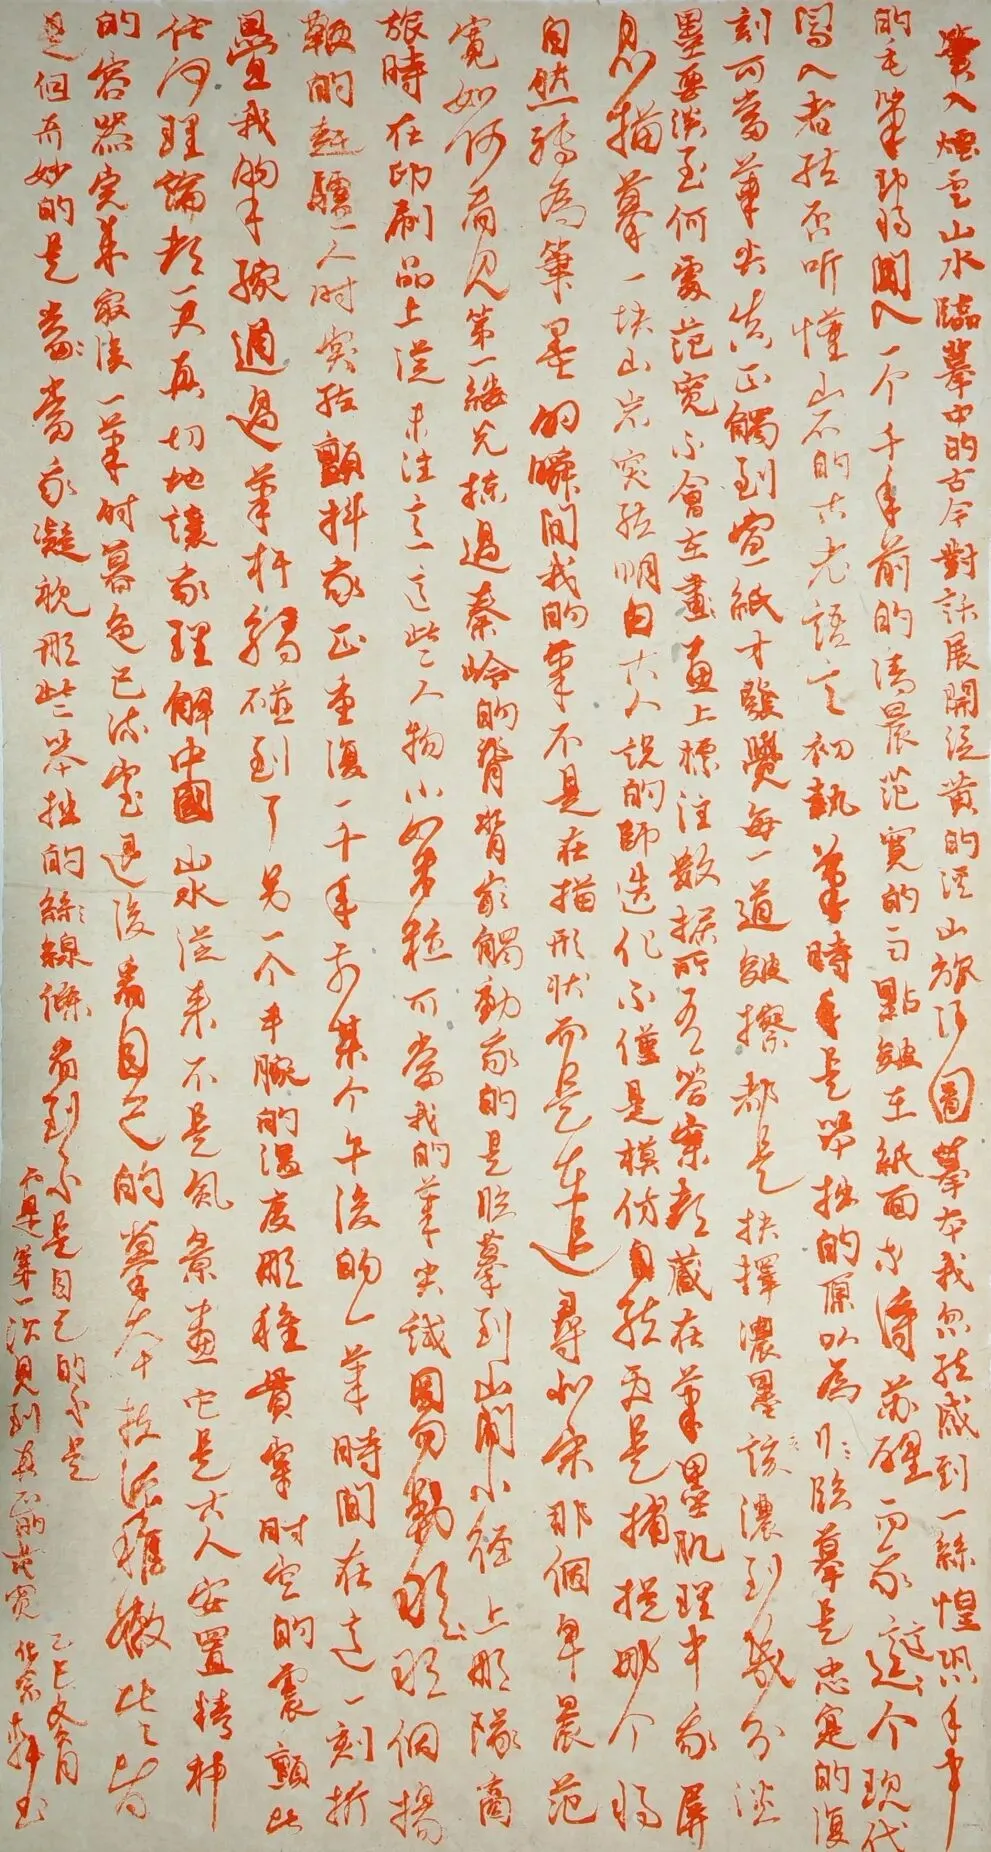 墨入煙雲山水臨摹中的古今對話展開泛黄的谿山旅行圖摹本我忽然感到一絲惶恐手中
的毛筆即将闖入一个千年前的清晨范寬的雨點皴在紙面未濟蘇醒而我這个现代
闯入者能否听懂山石的古老語言初執筆時手是笨拙的原以為臨摹是忠寔的復
刻可當筆尖真正觸到宣紙才發覺每一道皴擦都是抉擇濃墨該濃到幾分淡
墨要淡至何處范寬不會在畫面上標注數据所有答案都藏在筆墨肌理中我屏
息描摹一块山岩突然明白古人说的師造化不僅是模仿自然更是捕捉那个将
自然转為筆墨的瞬間我的筆不是在描形状而是在追尋北宋那個早晨范
寬如何看見第一縷光掠過秦岭的脊背最觸動我的是臨摹到山間小径上那隊商
旅時在印刷品上從未注意這些人物小如米粒可當我的筆尖試圖勾勒那個揚
鞭的赶驢人时突然顫抖我正重復一千年前某个午後的一筆時間在这一刻折
疊我的手穿過筆杆触碰到了另一个手腕的温度那種貫穿时空的震顫比
任何理論都更真切地讓我理解中國山水從来不是風景畫它是古人安置精神
的容器完集最後一筆时暮色已流室退後看自己的摹本技法稚嫩比之皆
是但奇妙的是當我凝視那些笨拙的絲線條看到不是自己的不是
而是第一次見到真正的范寬
乙巳冬月